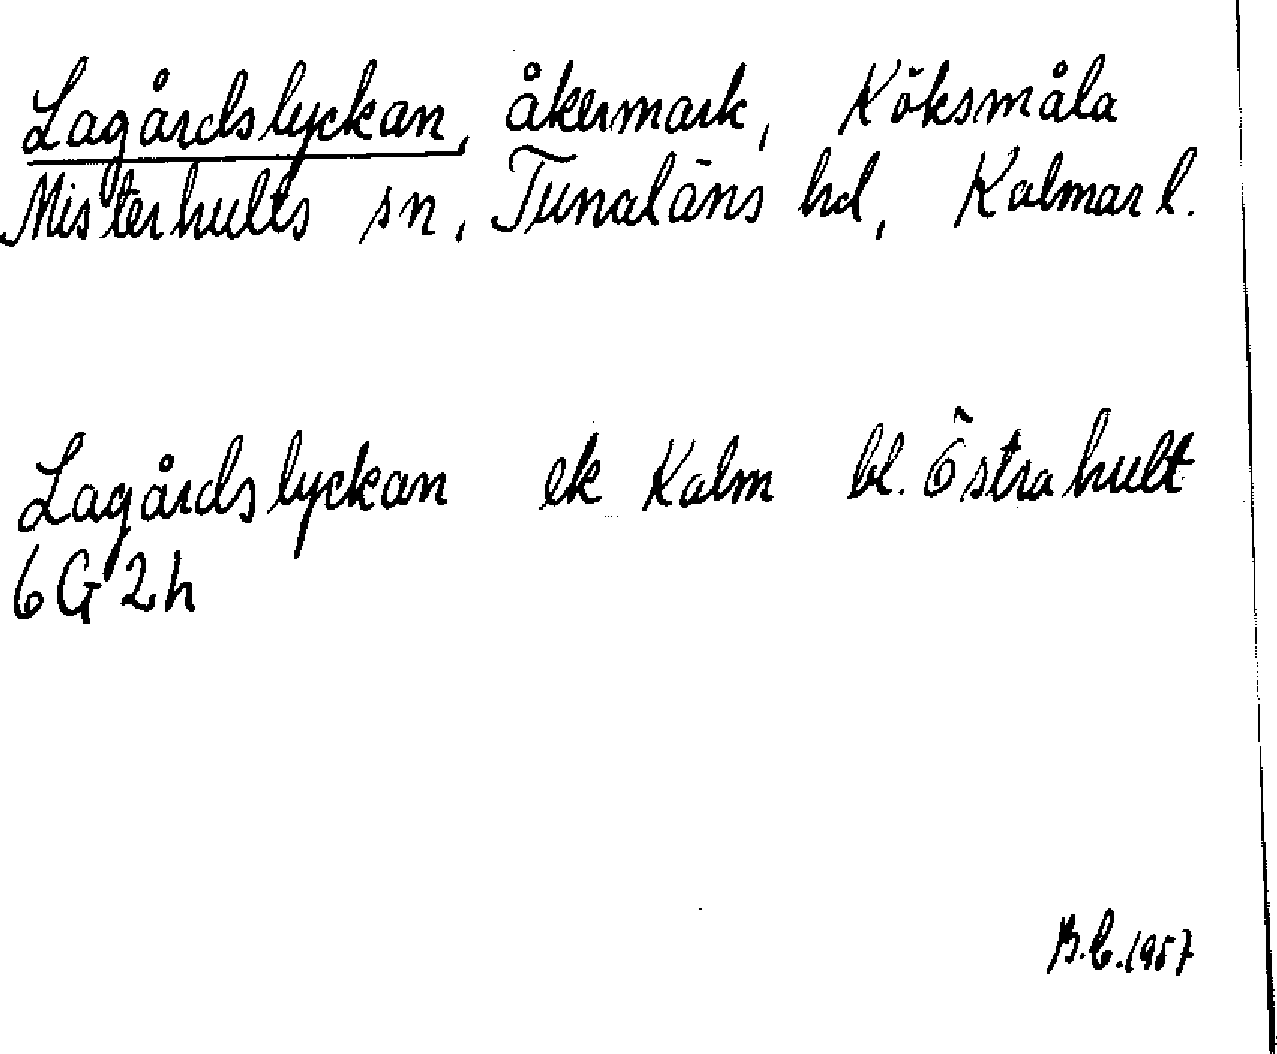 Lagårdslyckan, åkermark, Köksmåla
Misterhults sn, Tunaläns hd, Kalmar l.
Lagårdslyckan ek Kalm bl. Östrahult
6G2h
B.C.1957